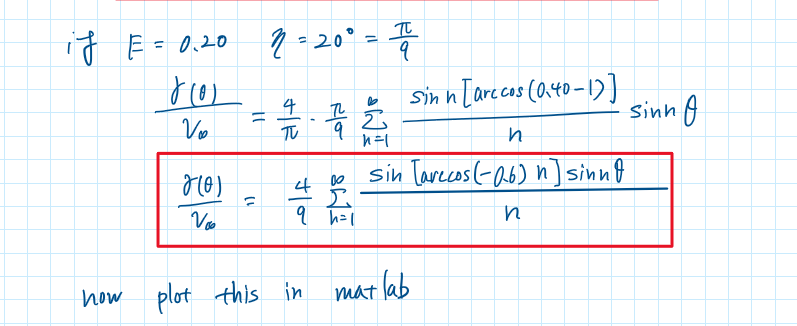 if E = 0.20 η = 20° = π/9
γ(θ)/V∞ = 4/π · π/9 ∑_{n=1}^{∞} sin n[arccos(0.40-1)]/n sin nθ
γ(θ)/V∞ = 4/9 ∑_{n=1}^{∞} sin [arccos(-0.6) n] sin nθ/n
now plot this in matlab